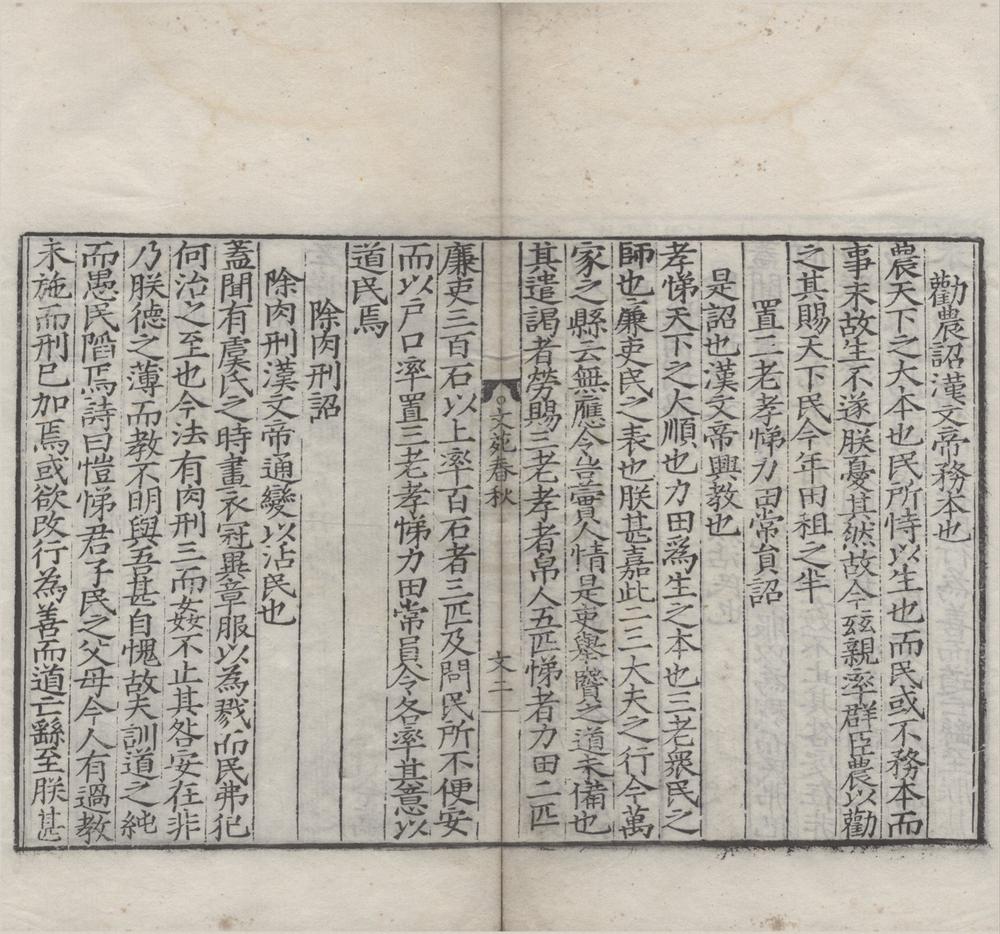 勸農詔漢文帝務本也
農天下之大本也民所恃以生也而民或不務本而
事末故生不遂朕憂其然故今茲親率群臣農以勸
之其賜天下民今年田租之半
置三老孝悌力田常員詔
是詔也漢文帝興教也
孝悌天下之大順也力田爲生之本也三老衆民之
師也廉吏民之表也朕甚嘉此二三大夫之行今萬
家之縣云無應令豈實人情是吏舉賢之道未備也
其遣謁者勞賜三老孝者帛人五匹悌者力田二匹
文苑春秋
文二
廉吏三百石以上率百石者三匹及問民所不便安
而以戶口率置三老孝悌力田常員令各率其意以
道民焉
除肉刑詔
除肉刑漢文帝通變以活民也
蓋聞有虞氏之時畫衣冠異章服以為戮而民弗犯
何治之至也今法有肉刑三而姦不止其咎安在非
乃朕德之薄而教不明與吾甚自愧故夫訓道之純
而愚民陷焉詩曰愷悌君子民之父母今人有過教
未施而刑已加焉或欲改行為善而道亡繇至朕甚